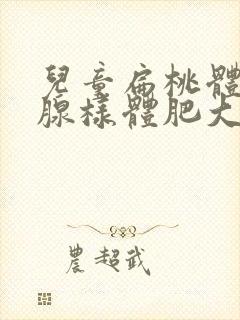 兒童扁桃體
腺樣體肥大
農超武